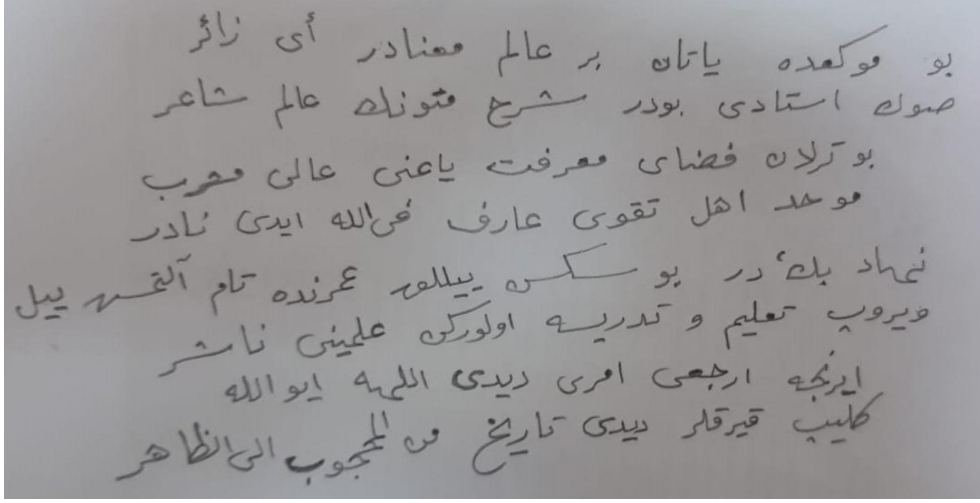 بو موكعده ياتان بر عالم معنادر أى زائر
صوك استادى بودر شرح متونك عالم شاعر
بو ترلان فضاى معرفت ياعنى عالى مشرب
موحد اهل تقوى عارف فى الله ايدى نادر
نهاد بك در بو سكسن ييللق عمرنده تام آلتمش ييل
ويروب تعليم و تدريسه اولوركن علمينى ناشر
ايرنجه ارجعى امرى ديدى اللهه ايو الله
كليب قيرقلر ديدى تاريخ من المحجوب الى الظاهر